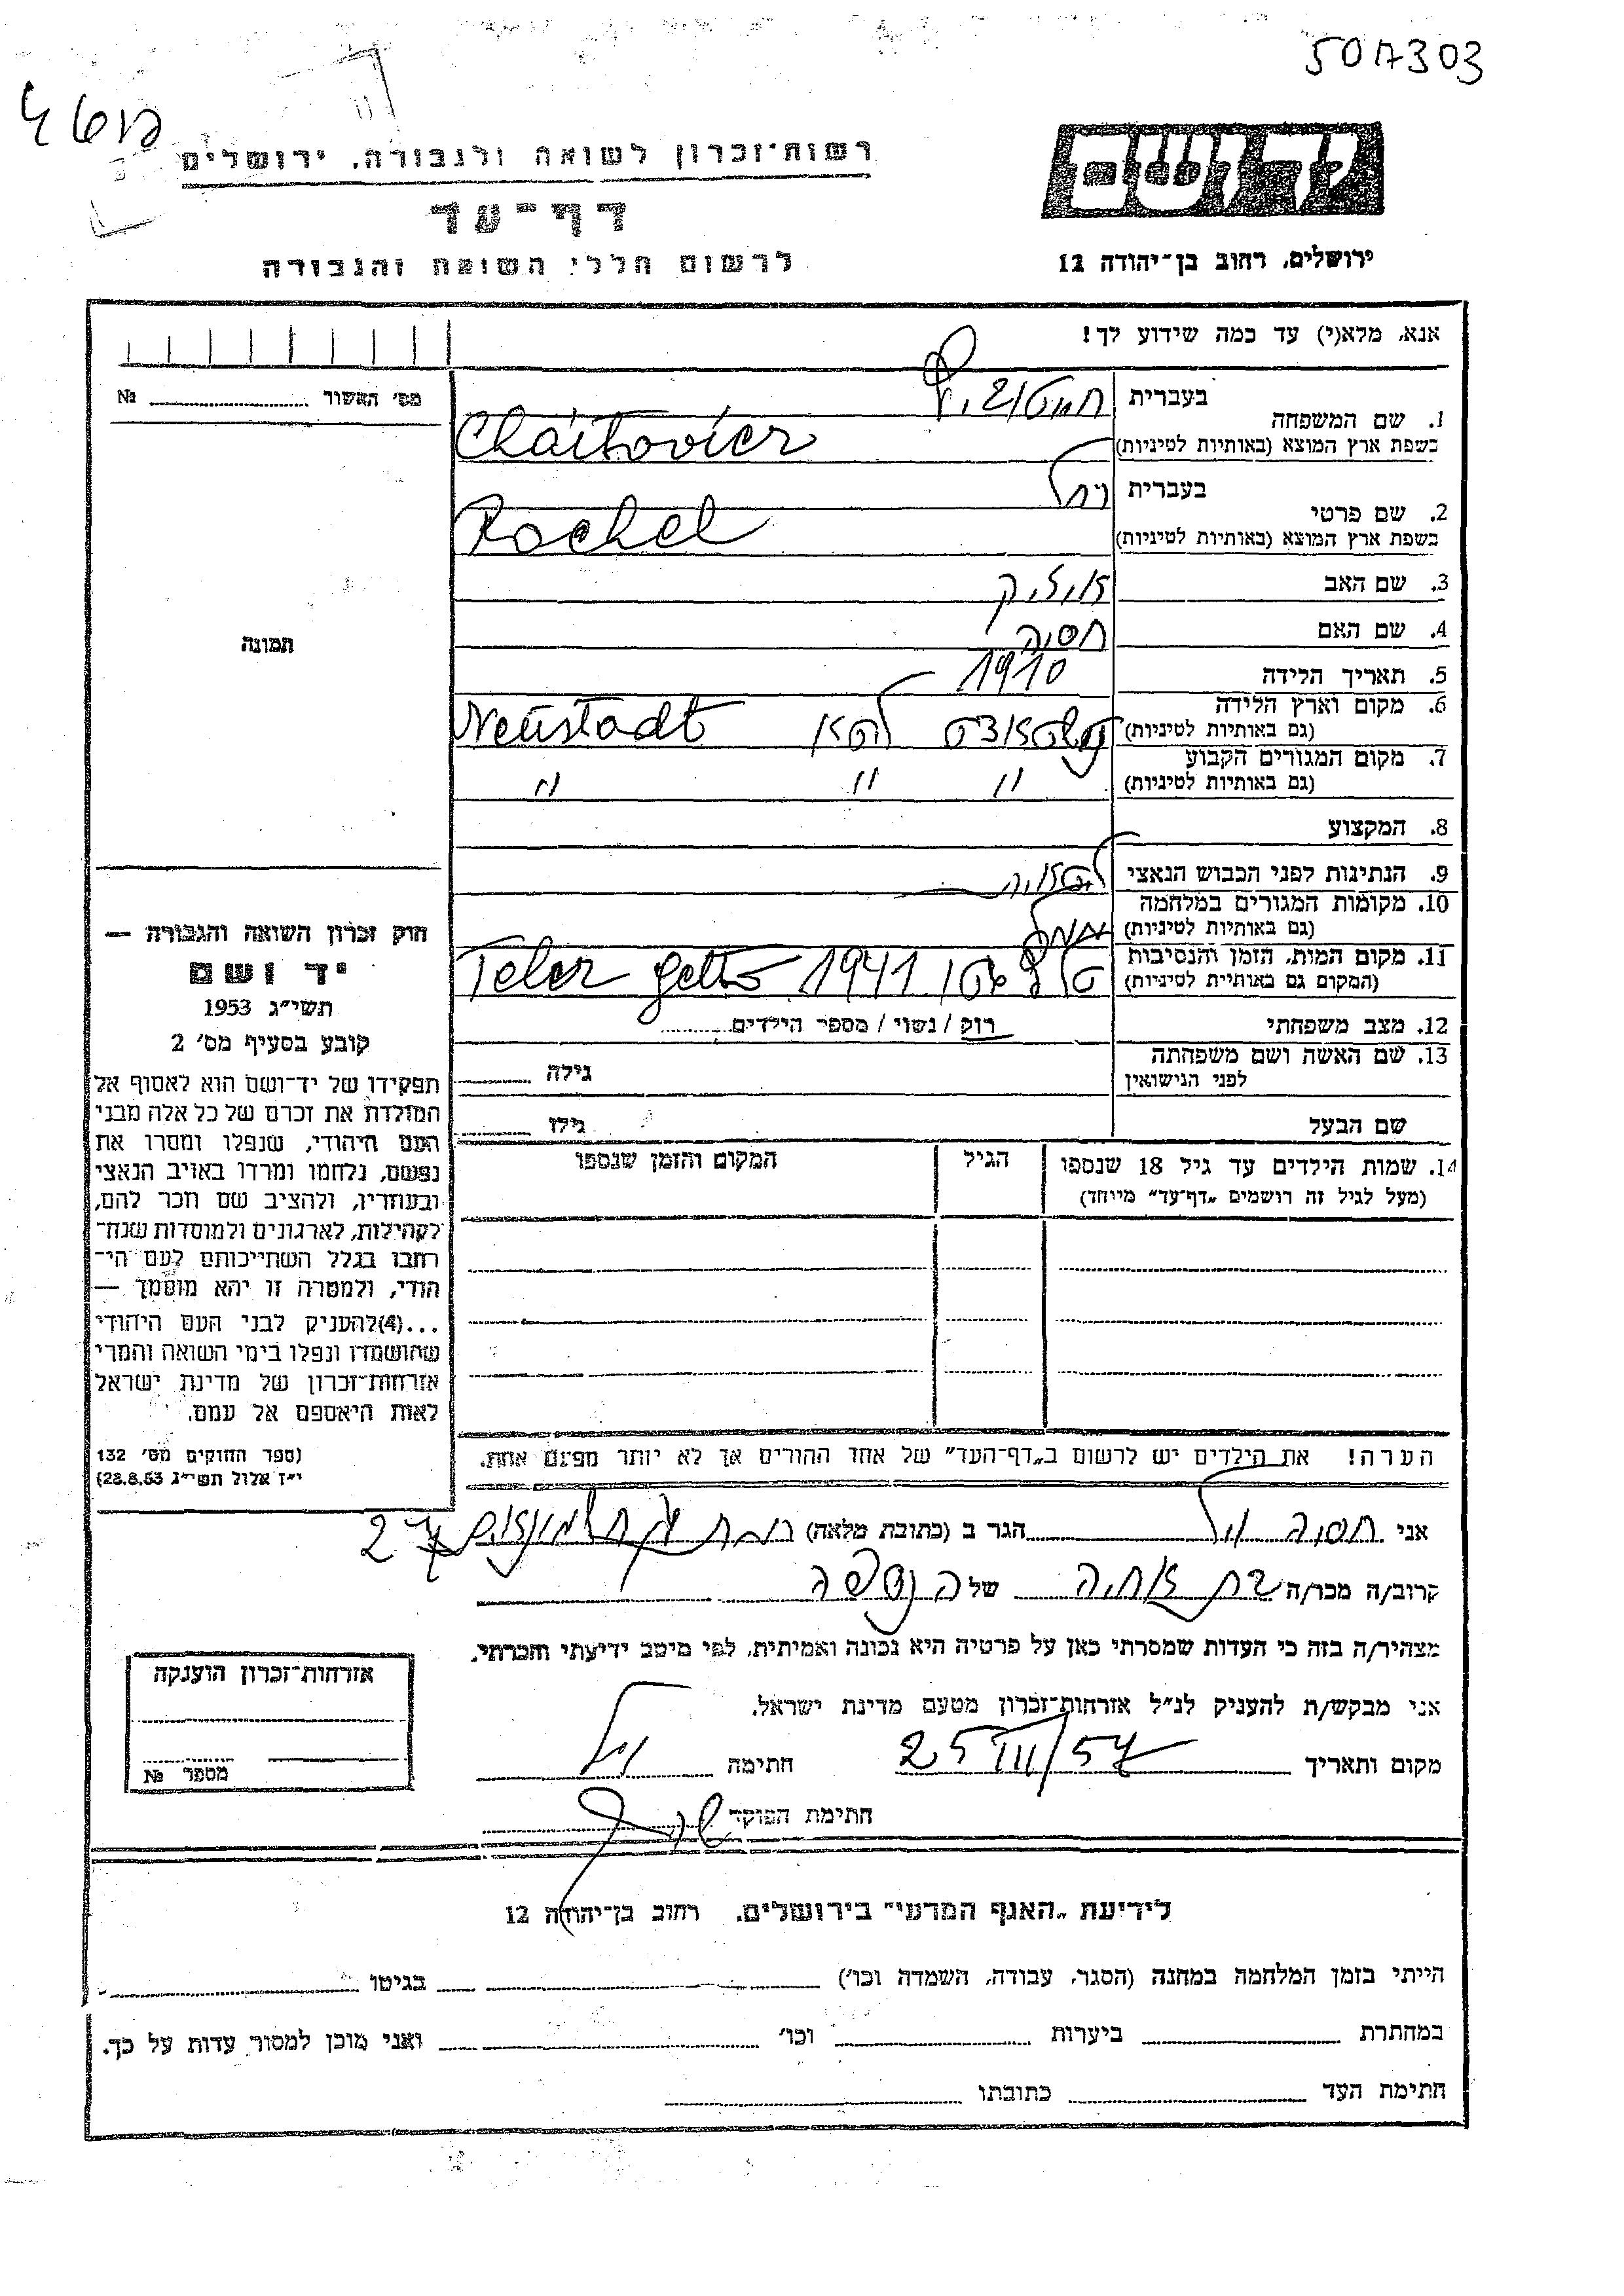 507303
רשות־זכרון לשואה ולגבורה, ירושלים
דף־עד
לרשום חללי השואה והגבורה
ירושלים, רחוב בן־יהודה 12
אנא, מלא(י) עד כמה שידוע לך!
מס׳ האשור № 
1. שם המשפחה
בעברית
בשפת ארץ המוצא (באותיות לטיניות)
Chaitovicz
2. שם פרטי
בעברית רחל
בשפת ארץ המוצא (באותיות לטיניות)
Rachel
3. שם האב אייזיק
4. שם האם חסיה
5. תאריך הלידה 1910
6. מקום וארץ הלידה
(גם באותיות לטיניות)
ליטא Neustadt
7. מקום המגורים הקבוע
(גם באותיות לטיניות) " " "
8. המקצוע
9. הנתינות לפני הכבוש הנאצי ליטאית
10. מקומות המגורים במלחמה
(גם באותיות לטיניות)
11. מקום המות, הזמן והנסיבות
(המקום גם באותיות לטיניות)
גטו 1941 Telez getto
12. מצב משפחתי רוק / נשוי / מספר הילדים
13. שם האשה ושם משפחתה
לפני הנישואין
גילה
שם הבעל גילו
14. שמות הילדים עד גיל 18 שנספו
(מעל לגיל זה רושמים „דף־עד״ מיוחד)
הגיל
המקום והזמן שנספו
תמונה
חוק זכרון השואה והגבורה —
יד ושם
תשי״ג 1953
קובע בסעיף מס׳ 2
תפקידו של יד־ושם הוא לאסוף אל
המולדת את זכרם של כל אלה מבני
העם היהודי, שנפלו ומסרו את
נפשם, נלחמו ומרדו באויב הנאצי
ובעוזריו, ולהציב שם וזכר להם,
לקהילות, לארגונים ולמוסדות שנח־
רבו בגלל השתייכותם לעם הי־
הודי, ולמטרה זו יהא מוסמך —
...(4)להעניק לבני העם היהודי
שהושמדו ונפלו בימי השואה והמרי
אזרחות־זכרון של מדינת ישראל
לאות היאספם אל עמם.
(ספר החוקים מס׳ 132
י״ז אלול תשי״ג 28.8.53)
הערה! את הילדים יש לרשום ב„דף־העד״ של אחד ההורים אך לא יותר מפעם אחת.
אני חסיה הגר ב (כתובת מלאה) רמת 27
קרוב/ה מכר/ה בת אחיה של הנספה
מצהיר/ה בזה כי העדות שמסרתי כאן על פרטיה היא נכונה ואמיתית, לפי מיטב ידיעתי והכרתי.
אני מבקש/ת להעניק לנ״ל אזרחות־זכרון מטעם מדינת ישראל.
מקום ותאריך 25 VII/57 חתימה
חתימת הפוקד
אזרחות־זכרון הוענקה
מספר №
לידיעת „האגף המדעי״ בירושלים, רחוב בן־יהודה 12
הייתי בזמן המלחמה במחנה (הסגר, עבודה, השמדה וכו׳) בגיטו
במחתרת ביערות וכו׳ ואני מוכן למסור עדות על כך.
חתימת העד כתובתו